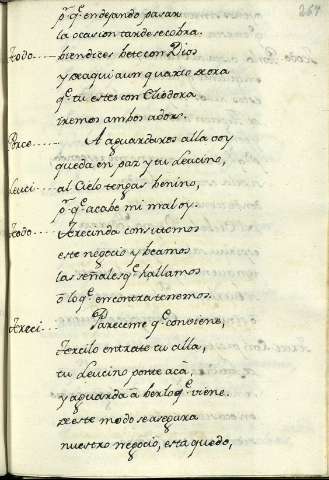 267
pr̃ q̃ endejando pasar
la ocasion tarde se cobra.
Todo... bien dices bete con Dios
y de aqui a un quarto de ora
q̃ tu estes con Eliodora
iremos ambos a dos.
Perce... A aguardaros alla voy
queda en paz y tu Leucino,
Leuci... al Cielo tengas benino,
pr̃ q̃ acabe mi mal oy.
Todo... Arecinda consutemos
este negocio y beamos
las señales q̃ hallamos
ò lo q̃ en contra tenemos.
Areci... Pareceme q̃ conviene,
entrate tu alla,
tu Leucino ponte acà,
y aguarda à ber lo q̃ viene.
de este modo se asegura
nuestro negocio, esta quedo,